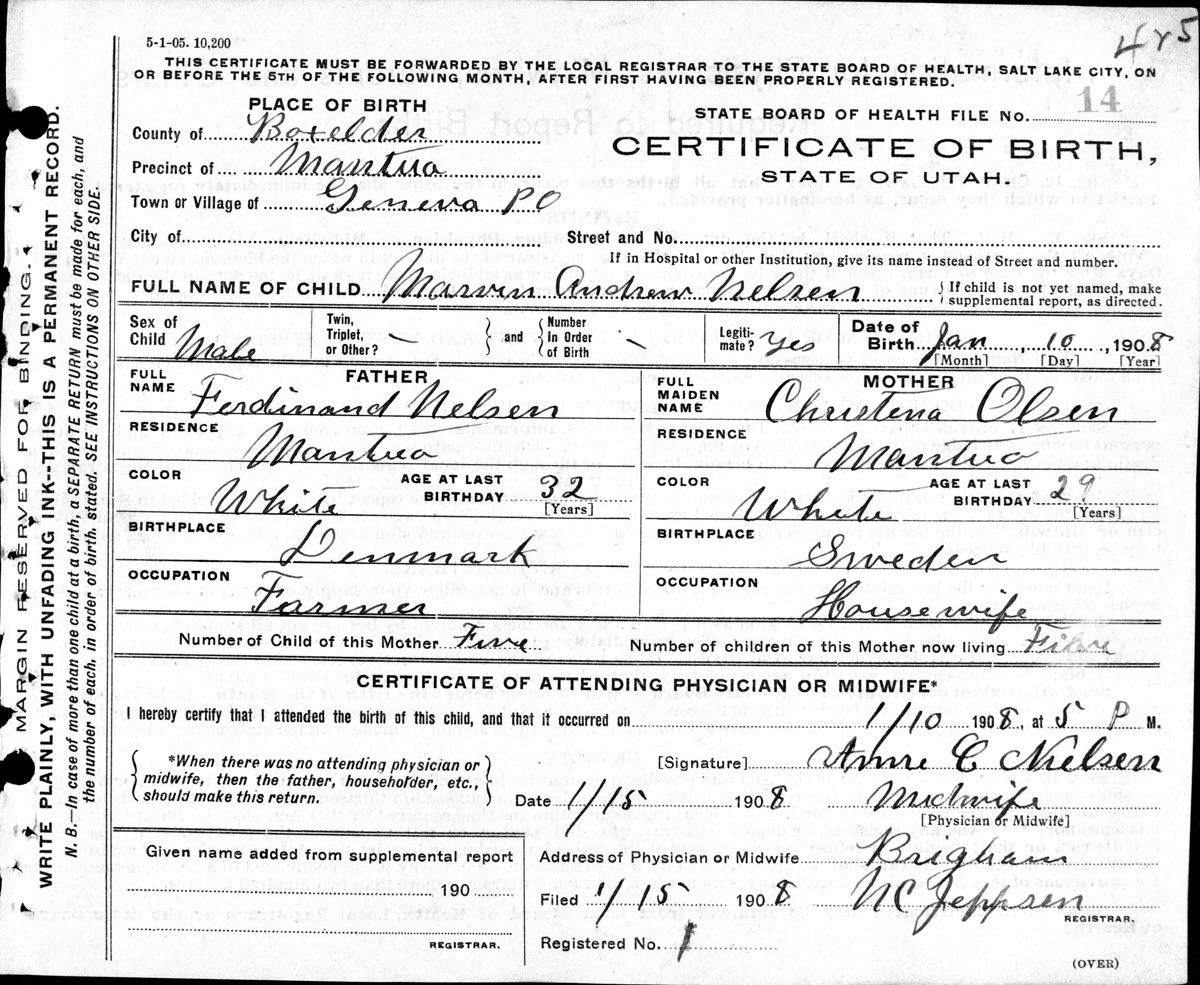 5-1-05. 10,200
4r5
THIS CERTIFICATE MUST BE FORWARDED BY THE LOCAL REGISTRAR TO THE STATE BOARD OF HEALTH, SALT LAKE CITY, ON
OR BEFORE THE 5TH OF THE FOLLOWING MONTH, AFTER FIRST HAVING BEEN PROPERLY REGISTERED.
PLACE OF BIRTH
STATE BOARD OF HEALTH FILE No. 14
County of Boxelder
CERTIFICATE OF BIRTH,
Precinct of Mantua
STATE OF UTAH.
Town or Village of Geneva PO
City of Street and No.
If in Hospital or other Institution, give its name instead of Street and number.
FULL NAME OF CHILD Marvin Andrew Nelsen { If child is not yet named, make supplemental report, as directed.
Sex of Child Male Twin, Triplet, or Other? } and { Number In Order of Birth Legiti- mate? Yes Date of Birth Jan, 10, 1908
[Month] [Day] [Year]
FATHER
FULL NAME Ferdinand Nelsen
RESIDENCE Mantua
COLOR White AGE AT LAST BIRTHDAY 32 [Years]
BIRTHPLACE Denmark
OCCUPATION Farmer
MOTHER
FULL MAIDEN NAME Christena Olsen
RESIDENCE Mantua
COLOR White AGE AT LAST BIRTHDAY 29 [Years]
BIRTHPLACE Sweden
OCCUPATION Housewife
Number of Child of this Mother Five Number of children of this Mother now living Five
CERTIFICATE OF ATTENDING PHYSICIAN OR MIDWIFE*
I hereby certify that I attended the birth of this child, and that it occurred on 1/10 1908, at 5 P M.
*When there was no attending physician or
midwife, then the father, householder, etc.,
should make this return.
[Signature] Anne C Nielsen
Date 1/15 1908 Midwife
[Physician or Midwife]
Given name added from supplemental report
190
REGISTRAR.
Address of Physician or Midwife Brigham
Filed 1/15 1908 NC Jeppsen
REGISTRAR.
Registered No. 1
(OVER)
MARGIN RESERVED FOR BINDING.
WRITE PLAINLY, WITH UNFADING INK--THIS IS A PERMANENT RECORD.
N. B.—In case of more than one child at a birth, a SEPARATE RETURN must be made for each, and
the number of each, in order of birth, stated. SEE INSTRUCTIONS ON OTHER SIDE.